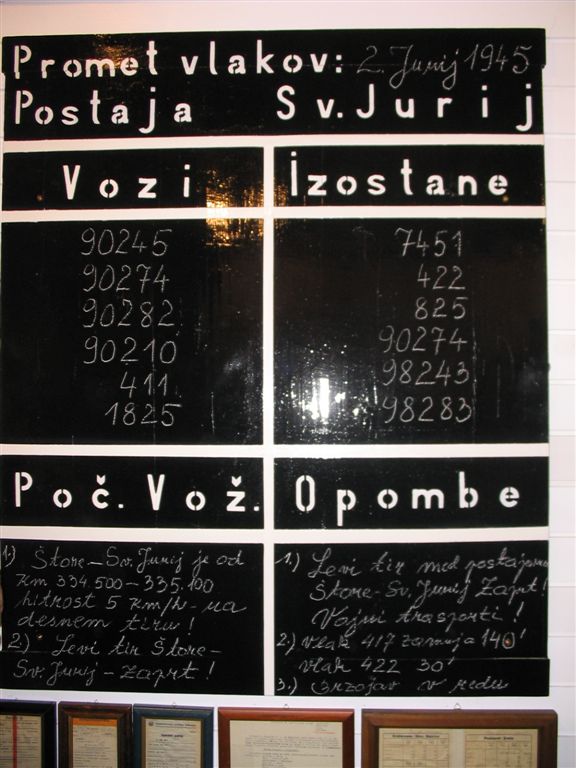 Promet vlakov: 2. Junij 1945
Postaja Sv. Jurij
Vozi
90245
90274
90282
90210
411
1825
Izostane
7451
422
825
90274
98243
98283
Poč. Vož.
1.) Štore - Sv. Jurij je od
km 334.500 - 335.100
hitrost 5 km/h - na
desnem tiru!
2.) Levi tir Štore -
Sv. Jurij - Zaprt!
Opombe
1.) Levi tir med postajama
Štore - Sv. Jurij Zaprt!
Vojni trasporti!
2.) vlak 417 zamuja 140'
vlak 422 30'
3.) Brzojav v redu